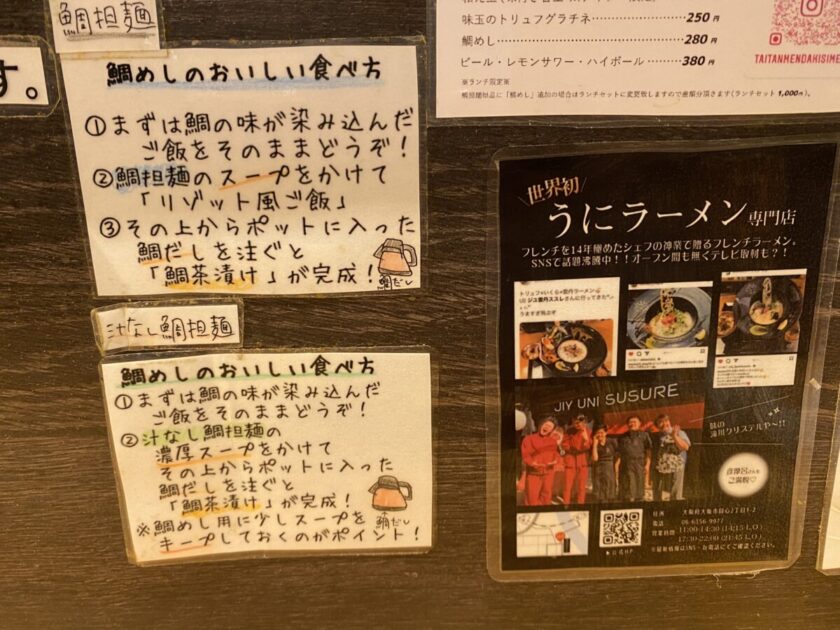 鯛担麺
す。
鯛めしのおいしい食べ方
①まずは鯛の味が染み込んだ
ご飯をそのままどうぞ!
②鯛担麺のスープをかけて
「リゾット風ご飯」
③その上からポットに入った
鯛だしを注ぐと
「鯛茶漬け」が完成!
鯛だし
汁なし鯛担麺
鯛めしのおいしい食べ方
①まずは鯛の味が染み込んだ
ご飯をそのままどうぞ!
②汁なし鯛担麺の
濃厚スープをかけて
その上からポットに入った
鯛だしを注ぐと
「鯛茶漬け」が完成!
鯛だし
※鯛めし用に少しスープを
キープしておくのがポイント!
味玉のトリュフグラチネ 250円
鯛めし 280円
ビール・レモンサワー・ハイボール 380円
※ランチ限定※
TAITANMENDAKISIME
世界初
うにラーメン専門店
フレンチを14年極めたシェフの神業で贈るフレンチラーメン。
SNSで話題沸騰中!!オープン間も無くテレビ取材も?!
JIY UNI SUSURE
味の
滝川クリステルや〜!!
彦摩呂さんも
ご満悦♡
住所
電話 06-6156-9977
営業時間 11:00-14:30 (14:15 L.O)
17:30-22:00 (21:45 L.O)
公式HP
※最新情報はSNS・お電話にてご確認ください。